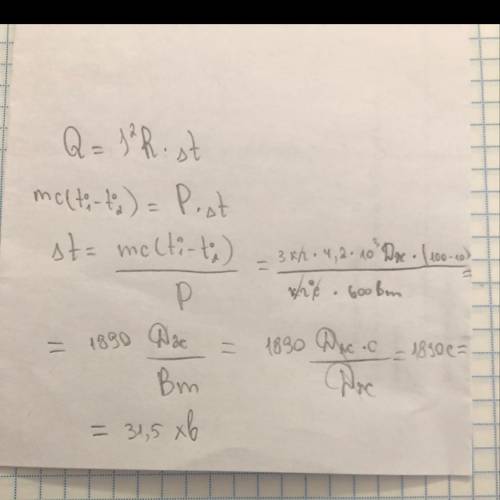 Q = J²R · Δt
mc(t°₁-t°₂) = P · Δt
Δt = mc(t°₁-t°₂) / P = 3 кг · 4,2 · 10³ Дж · (100-10) / кг°C · 600 Вт =
= 1890 Дж / Вт = 1890 Дж · с / Дж = 1890 с =
= 31,5 хв